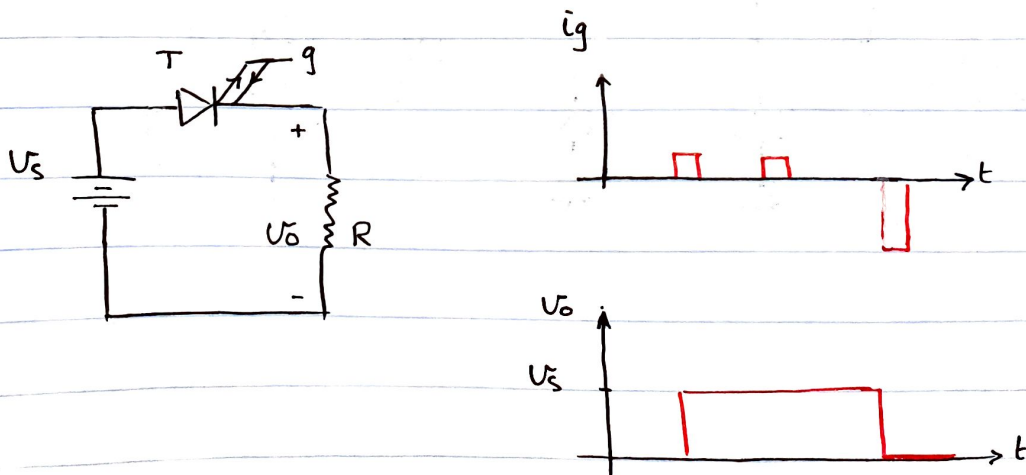 T
g
+
Vs
Vo
R
-
ig
t
Vo
Vs
t